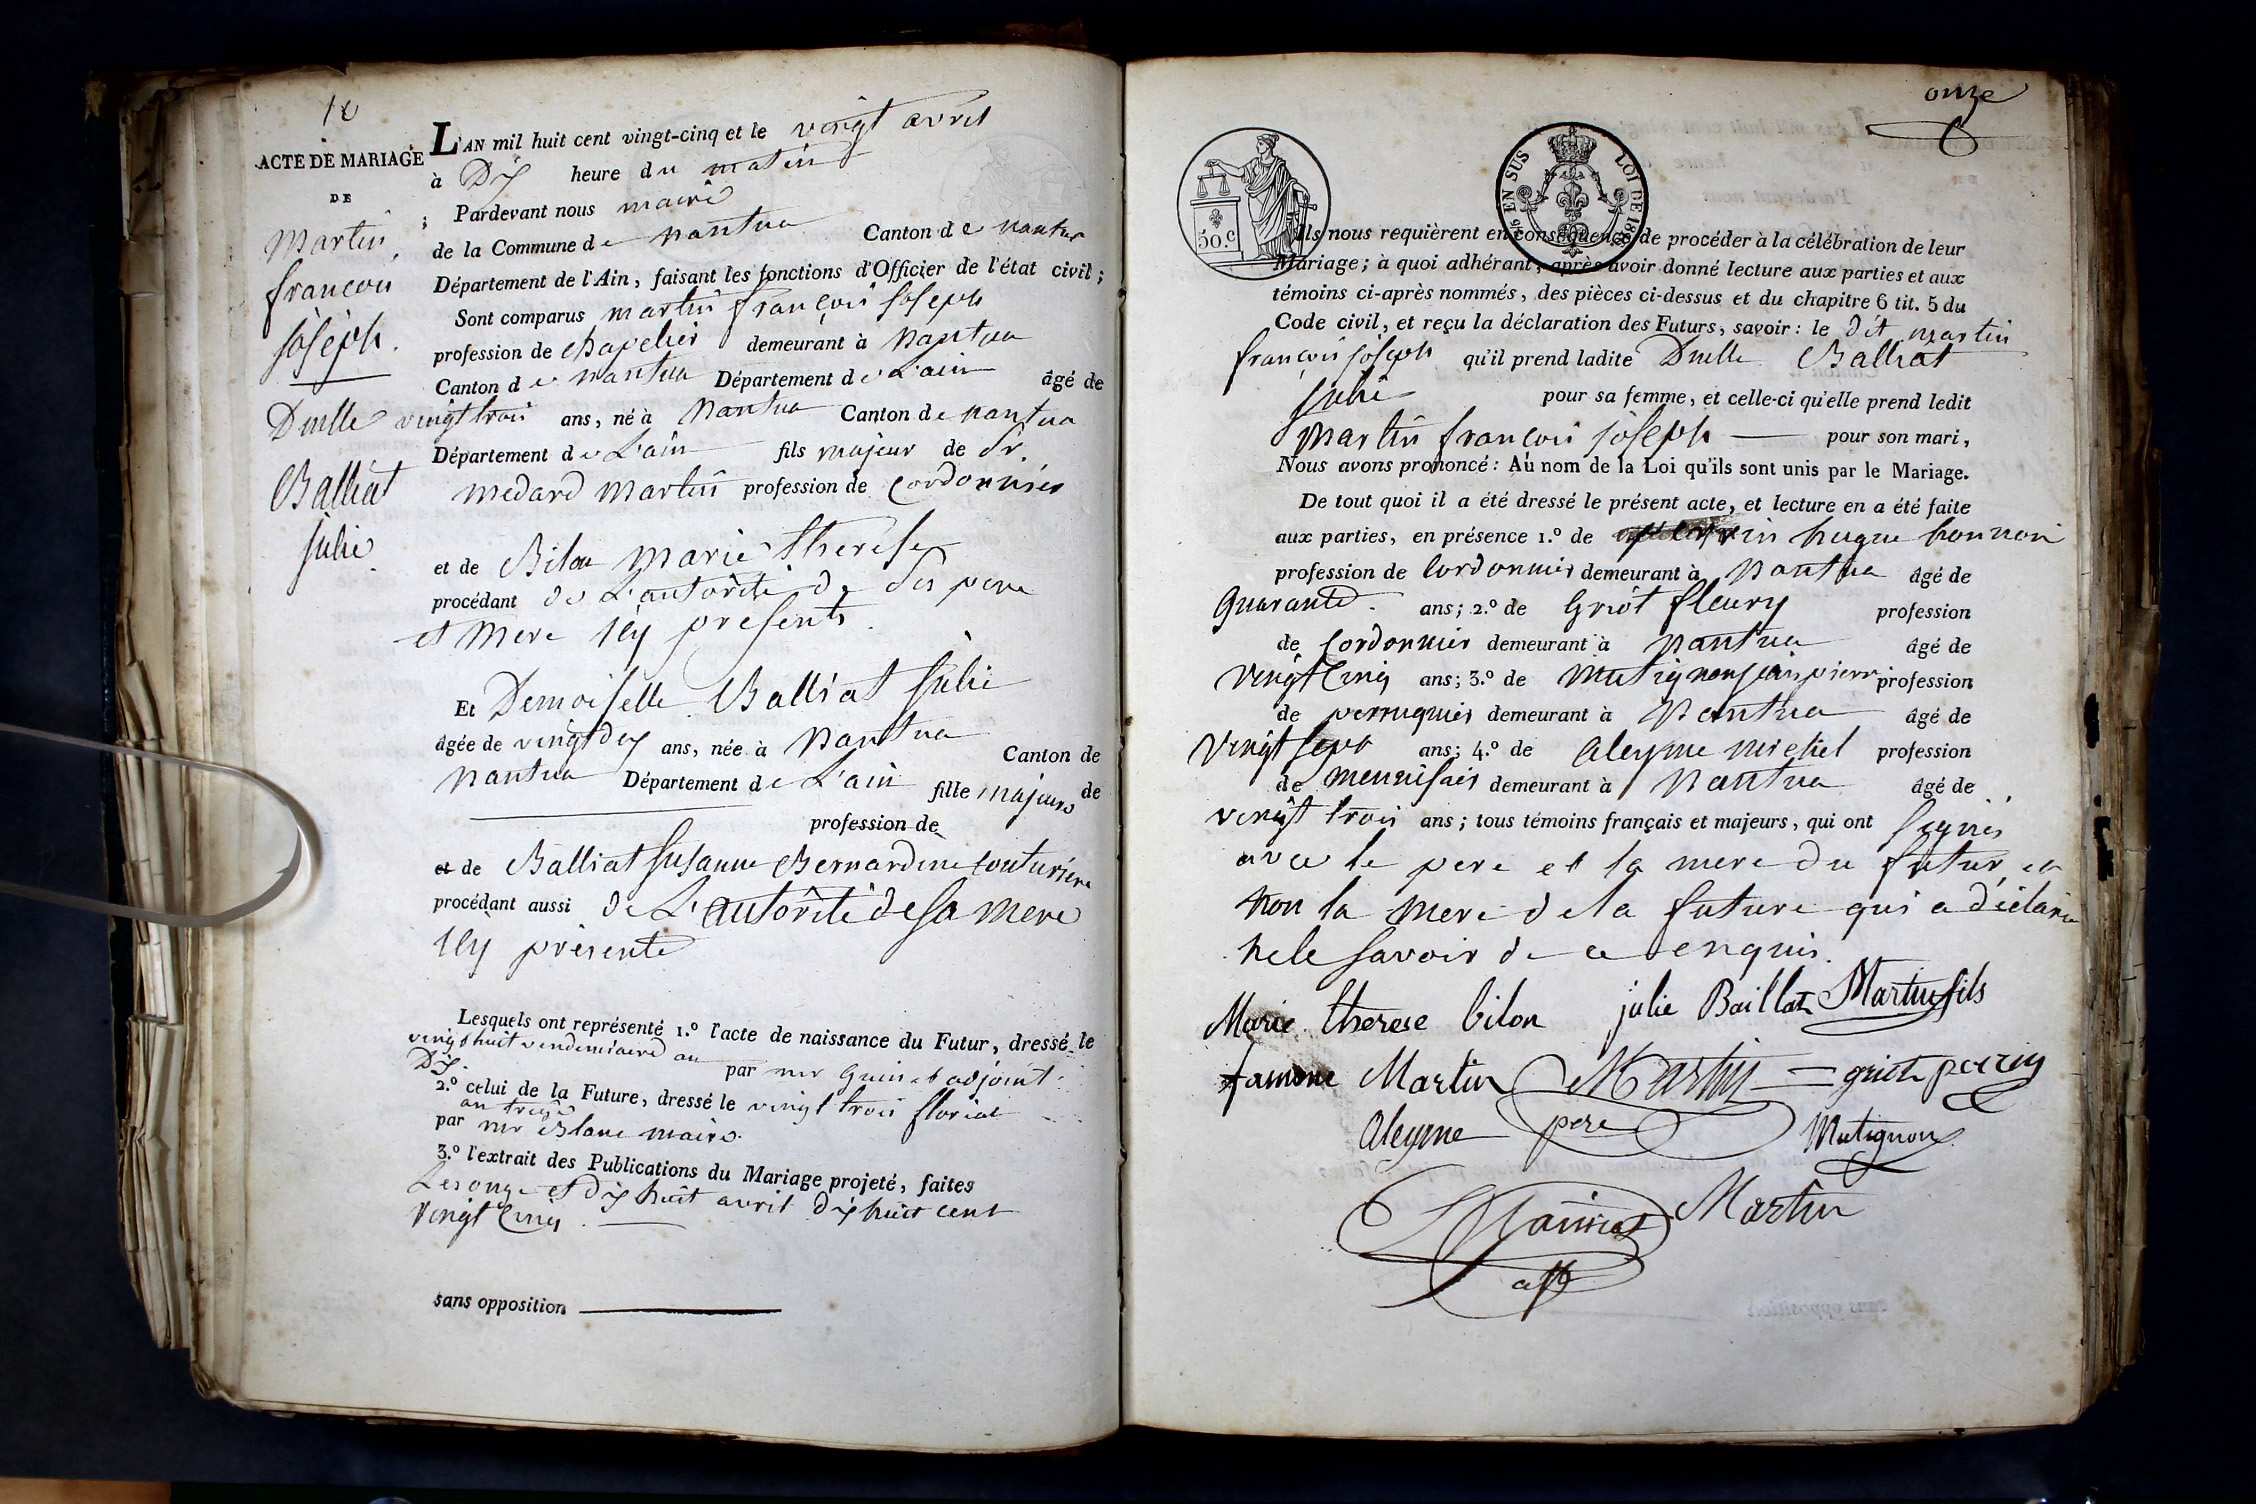 18
ACTE DE MARIAGE
DE
Martin
françois
joseph.
Dmlle
Balliat
julie.
L'AN mil huit cent vingt-cinq et le vingt avril
à Dix heure du matin
; Pardevant nous maire
de la Commune de nantua Canton de nantua
Département de l'Ain, faisant les fonctions d'Officier de l'état civil;
Sont comparus martin françois joseph
profession de chapelier demeurant à nantua
Canton de nantua Département de L'ain âgé de
vingt trois ans, né à nantua Canton de nantua
Département de L'ain fils majeur de Sr.
medard martin profession de Cordonnier
et de Bilon marie therese
procédant de L'autorité de ses pere
et mere icy presents.
Et Demoiselle Balliat julie
âgée de vingt dex ans, née à nantua Canton de
nantua Département de L'ain fille majeure de
profession de
et de Balliat susanne Bernardine couturiere
procédant aussi de L'autorité de sa mere
icy présente
Lesquels ont représenté 1.º l'acte de naissance du Futur, dressé le
vingt huit vendemiaire an
Dix. par mr adjoint.
2.º celui de la Future, dressé le vingt trois floreal
an treize
par mr Blanc maire.
3.º l'extrait des Publications du Mariage projeté, faites
Les onze et dix huit avril dix huit cent
Vingt Cinq.
sans opposition
onze
50.C
EN SUS
LOI DE 18
Ils nous requièrent en conséquence de procéder à la célébration de leur
Mariage; à quoi adhérant, après avoir donné lecture aux parties et aux
témoins ci-après nommés, des pièces ci-dessus et du chapitre 6 tit. 5 du
Code civil, et reçu la déclaration des Futurs, savoir: le dit martin
françois joseph qu'il prend ladite Dmlle Balliat
julie pour sa femme, et celle-ci qu'elle prend ledit
Martin françois joseph pour son mari,
Nous avons prononcé: Au nom de la Loi qu'ils sont unis par le Mariage.
De tout quoi il a été dressé le présent acte, et lecture en a été faite
aux parties, en présence 1.º de hugue
profession de Cordonnier demeurant à Nantua âgé de
Quarante. ans; 2.º de Griot fleury profession
de Cordonnier demeurant à Nantua âgé de
Vingt Cinq ans; 3.º de Mutignon jean pierre profession
de perruquier demeurant à Nantua âgé de
Vingt sept ans; 4.º de aleyme michel profession
de menuisier demeurant à Nantua âgé de
vingt trois ans; tous témoins français et majeurs, qui ont signés
avec le pere et la mere du futur, et
non la mere de la future qui a déclaré
ne le savoir de ce enquis.
Marie therese bilon julie Baillat Martin fils
Martin Martin = griot perrin
aleyme pere Mutignon
Martin